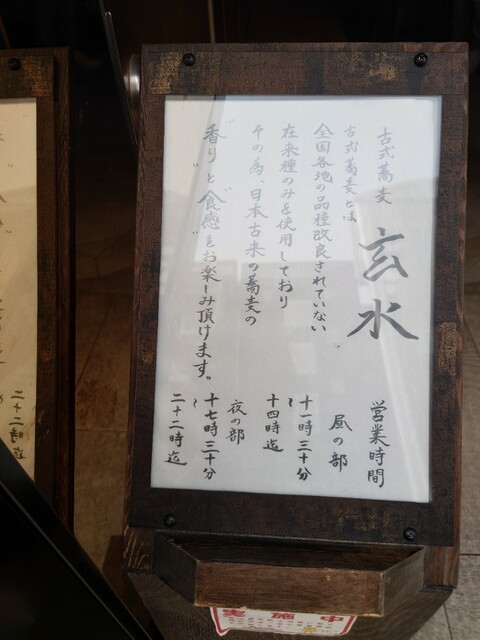 古式蕎麦
玄水
古式蕎麦とは
全国各地の品種改良されていない
在来種のみを使用しており
その為、日本古来の蕎麦の
"香り"と"食感"をお楽しみ頂けます。
営業時間
昼の部
十一時三十分
〜
十四時迄
夜の部
十七時三十分
〜
二十二時迄
二十二時迄
実施中